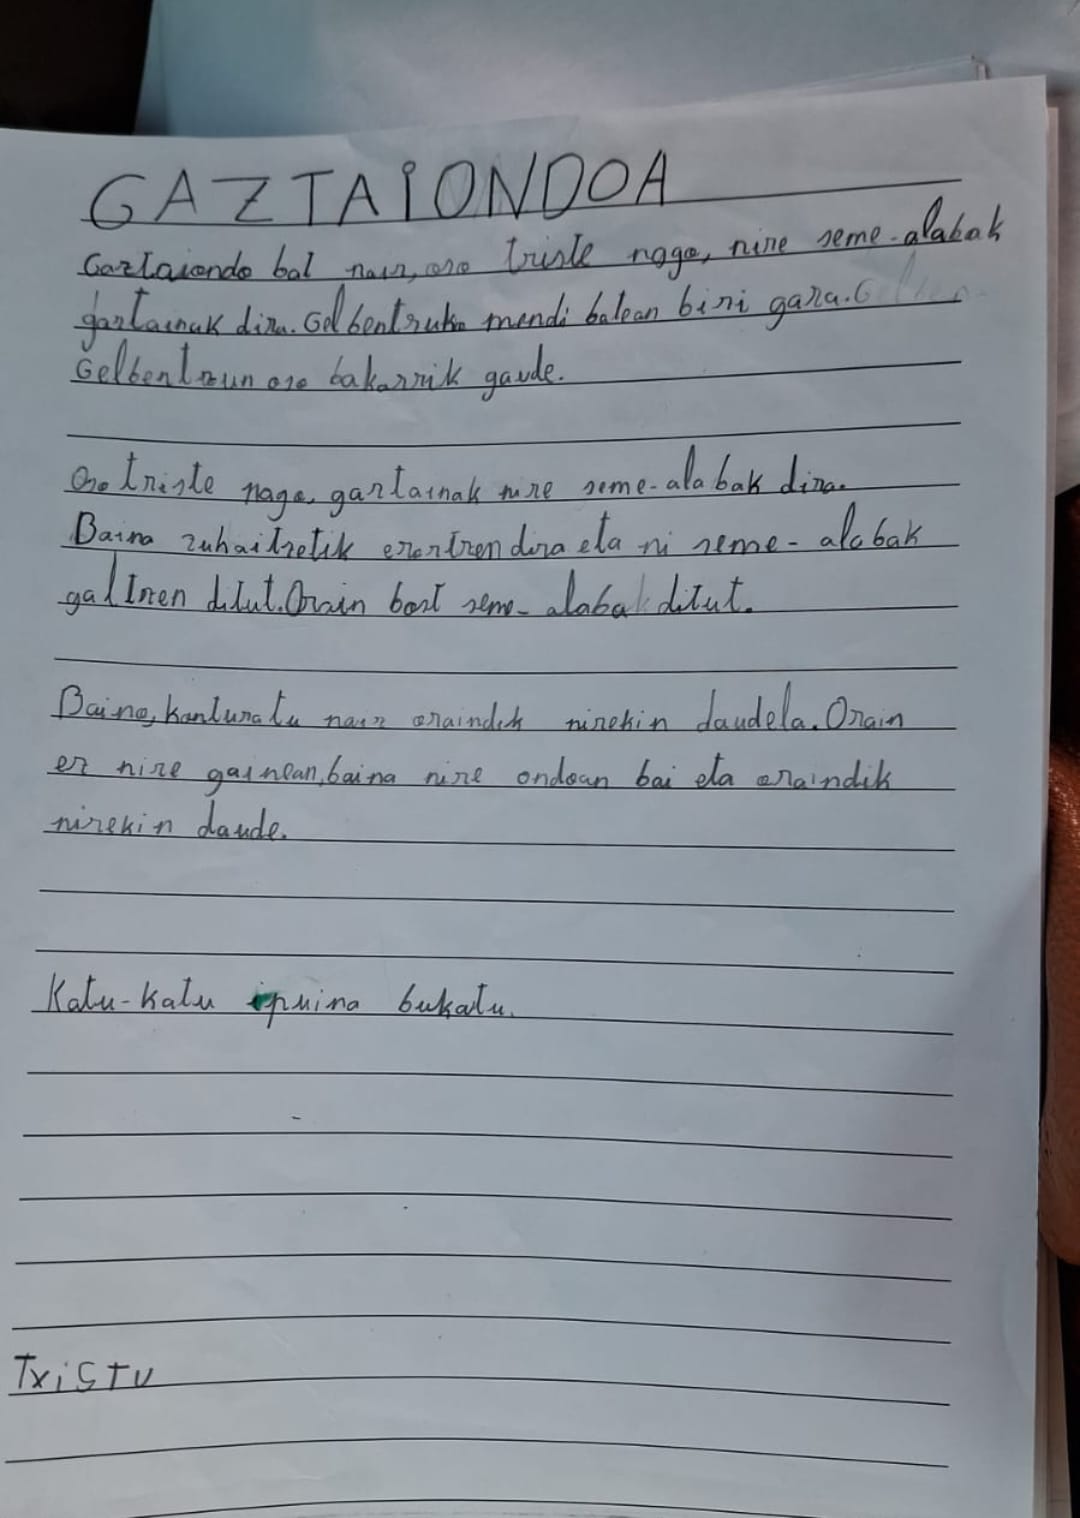 GAZTAIONDOA
Gaztaiondo bat naiz, oso triste nago, nire seme-alabak
gaztainak dira. Gelbentzuko mendi batean bizi gara.
Gelbentzun oso bakarrik gaude.
Oso triste nago, gaztainak nire seme-alabak dira.
Baina zuhaitzetik erortzen dira eta ni seme-alabak
galtzen ditut. Orain bost seme-alabak ditut.
Baina, konturatu naiz oraindik nirekin daudela. Orain
ez nire gainean, baina nire ondoan bai eta oraindik
nirekin daude.
Katu-katu ipuina bukatu.
TxiSTu